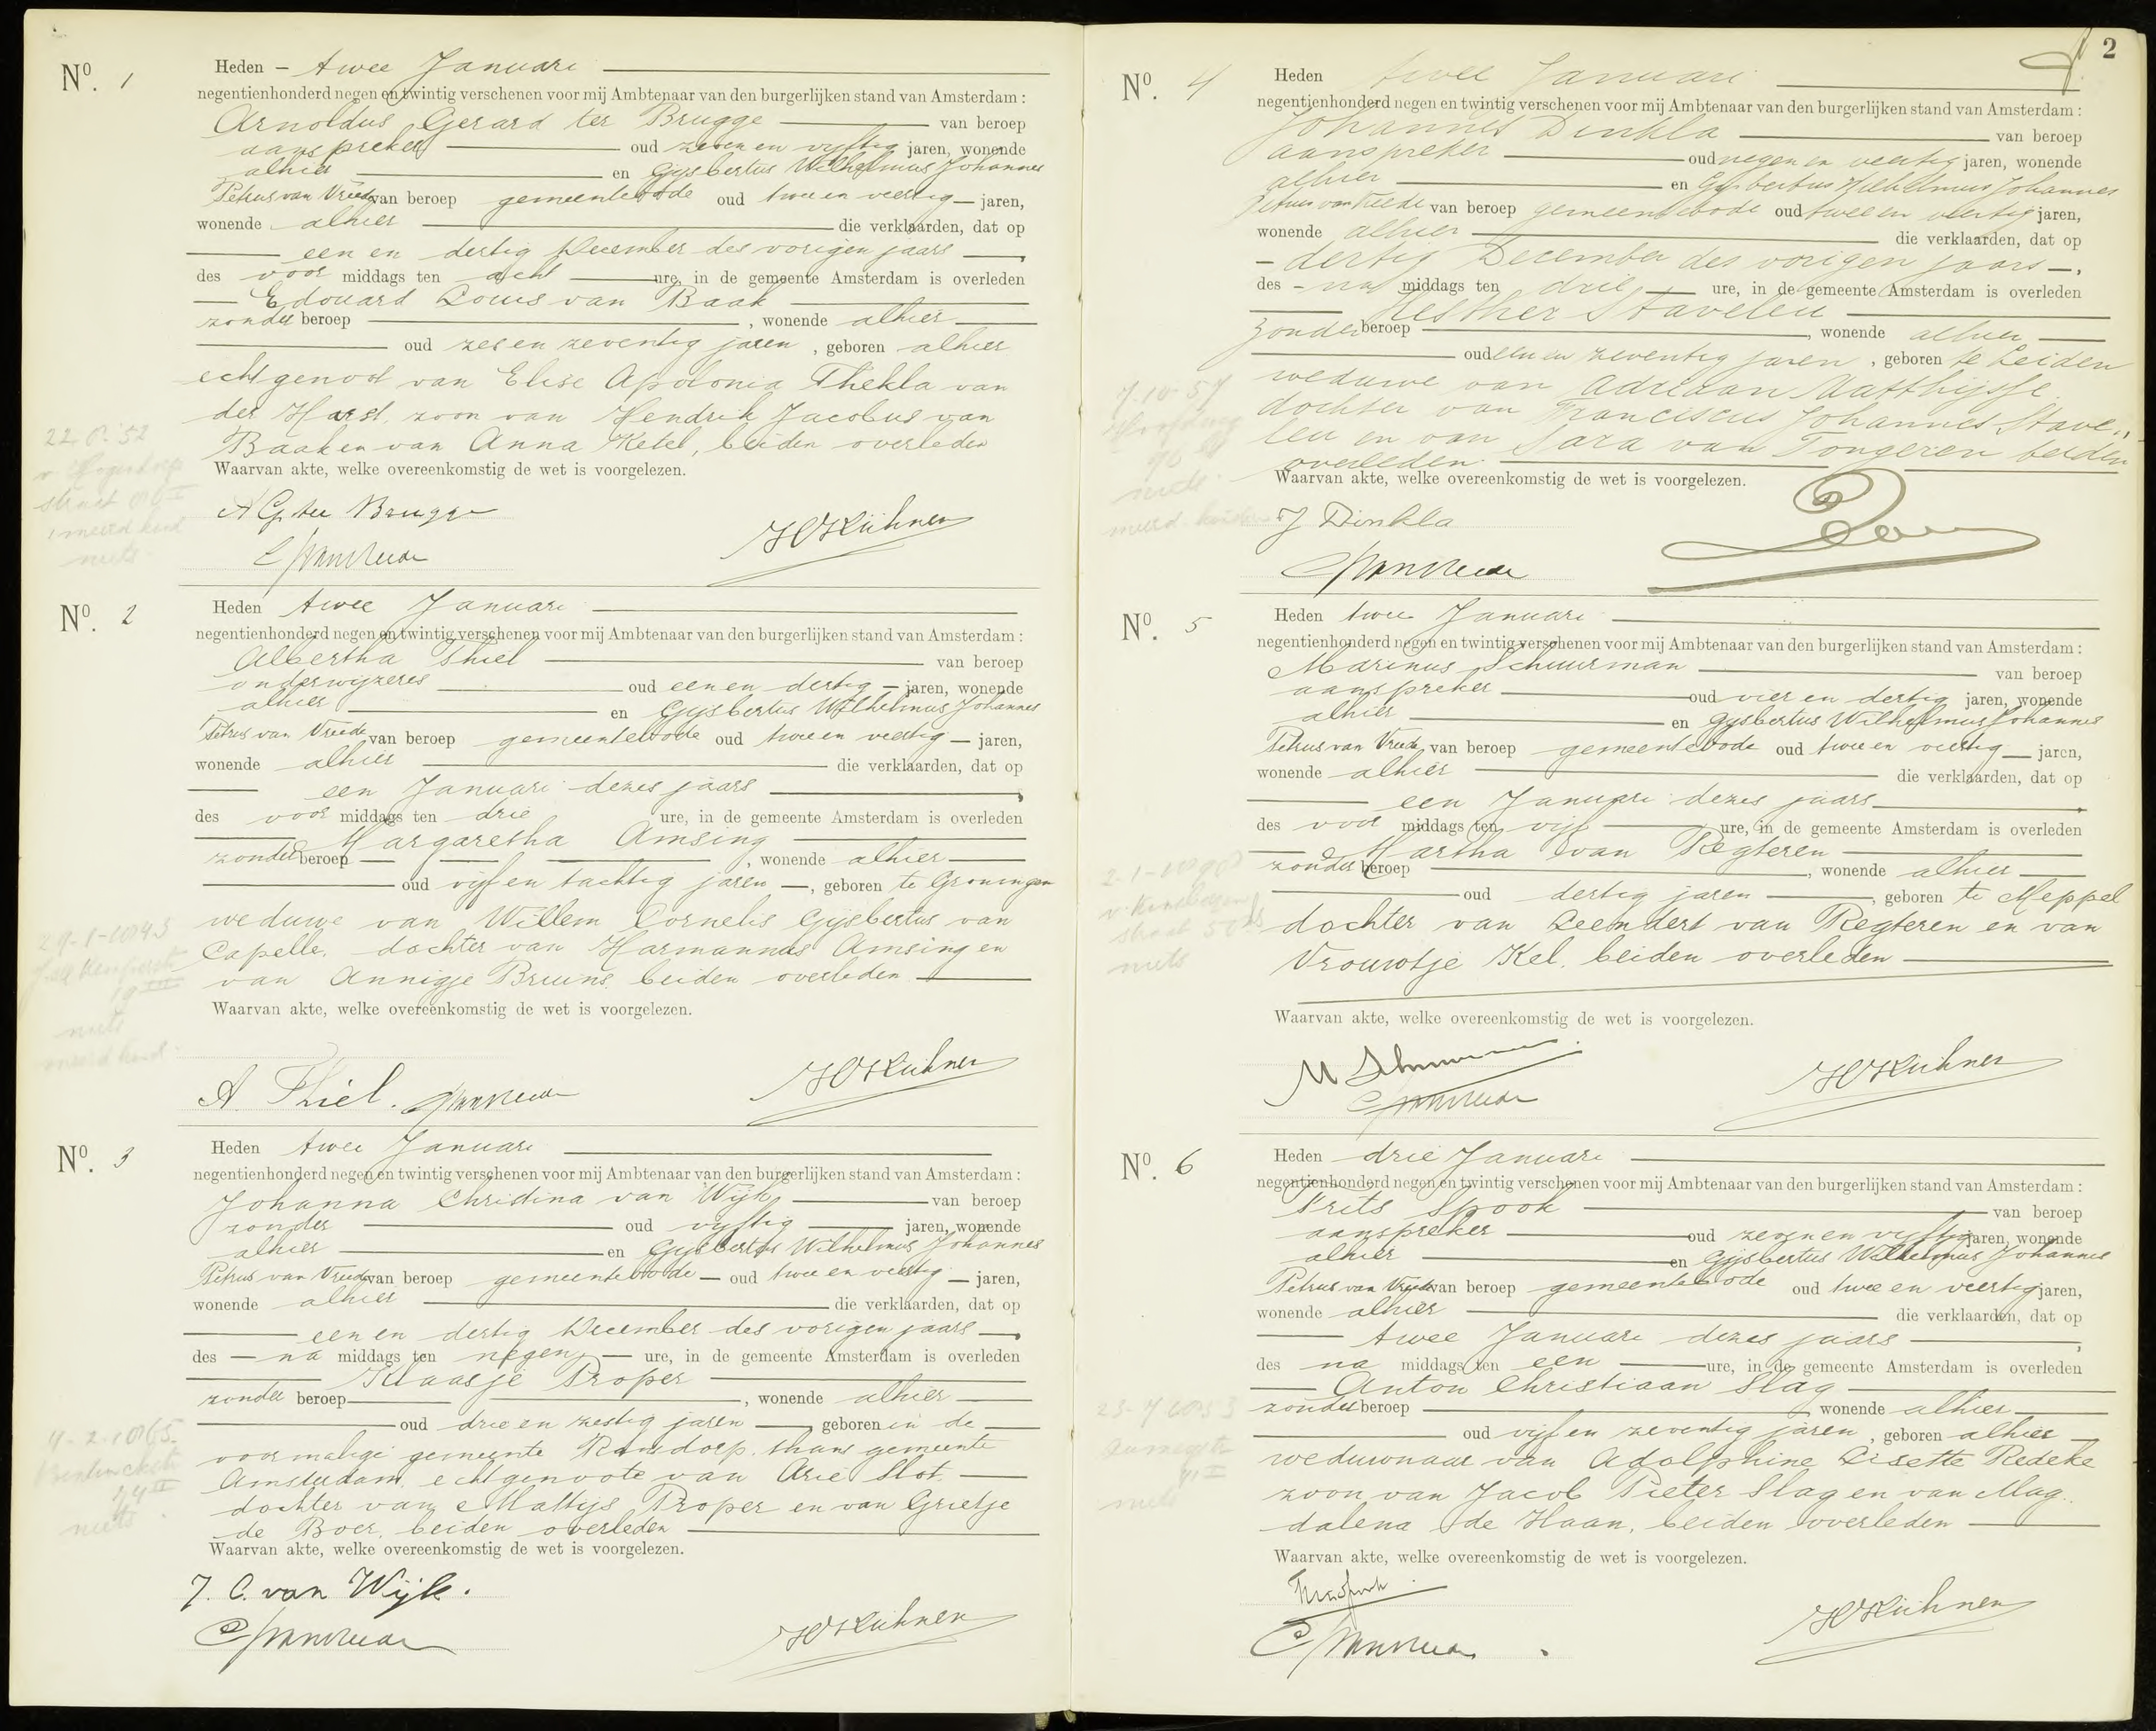 Nº. 1
Heden - twee Januari
negentienhonderd negen en twintig verschenen voor mij Ambtenaar van den burgerlijken stand van Amsterdam :
Arnoldus Gerard ter Brugge van beroep
aanspreker oud zeven en vijftig jaren, wonende
alhier en Gijsbertus Wilhelmus Johannes
Petrus van Vreede van beroep gemeentebode oud twee en veertig jaren,
wonende alhier die verklaarden, dat op
een en dertig December des vorigen jaars,
des voor middags ten acht ure, in de gemeente Amsterdam is overleden
Edouard Louis van Baak
zonder beroep , wonende alhier
oud zes en zeventig jaren , geboren alhier
echtgenoot van Elise Apolonia Thekla van
der Horst, zoon van Hendrik Jacobus van
Baak en van Anna Ketel, beiden overleden
Waarvan akte, welke overeenkomstig de wet is voorgelezen.
A G ter Brugge
HJKühnen
Nº. 2
Heden twee Januari
negentienhonderd negen en twintig verschenen voor mij Ambtenaar van den burgerlijken stand van Amsterdam :
Albertha Thiel van beroep
onderwijzeres oud een en dertig jaren, wonende
alhier en Gijsbertus Wilhelmus Johannes
Petrus van Vreede van beroep gemeentebode oud twee en veertig jaren,
wonende alhier die verklaarden, dat op
een Januari dezes jaars ,
des voor middags ten drie ure, in de gemeente Amsterdam is overleden
Margaretha Amsing
zonder beroep , wonende alhier
oud vijf en tachtig jaren , geboren te Groningen
weduwe van Willem Cornelis Gijsbertus van
Capelle, dochter van Harmannus Amsing en
van Annigje Bruins, beiden overleden
Waarvan akte, welke overeenkomstig de wet is voorgelezen.
A. Thiel.
Kühnen
Nº. 3
Heden twee Januari
negentienhonderd negen en twintig verschenen voor mij Ambtenaar van den burgerlijken stand van Amsterdam :
Johanna Christina van Wijk van beroep
zonder oud vijftig jaren, wonende
alhier en Gijsbertus Wilhelmus Johannes
Petrus van Vreede van beroep gemeentebode oud twee en veertig jaren,
wonende alhier die verklaarden, dat op
een en dertig December des vorigen jaars,
des na middags ten negen ure, in de gemeente Amsterdam is overleden
Klaasje Proper
zonder beroep , wonende alhier
oud drie en zestig jaren , geboren in de
voormalige gemeente Ransdorp, thans gemeente
Amsterdam, echtgenoote van Arie Slot,
dochter van Mattijs Proper en van Grietje
de Boer, beiden overleden
Waarvan akte, welke overeenkomstig de wet is voorgelezen.
J. C. van Wijk.
Kühnen
2
Nº. 4
Heden twee Januari
negentienhonderd negen en twintig verschenen voor mij Ambtenaar van den burgerlijken stand van Amsterdam :
Johannes Dinkla van beroep
aanspreker oud negen en veertig jaren, wonende
alhier en Gijsbertus Wilhelmus Johannes
Petrus van Vreede van beroep gemeentebode oud twee en veertig jaren,
wonende alhier die verklaarden, dat op
dertig December des vorigen jaars,
des na middags ten drie ure, in de gemeente Amsterdam is overleden
Hesther Staveleu
zonder beroep , wonende alhier
oud een en zeventig jaren , geboren te Leiden
weduwe van Adriaan Matthijsse
dochter van Franciscus Johannes Stave„
leu en van Sara van Tongeren beiden
overleden
Waarvan akte, welke overeenkomstig de wet is voorgelezen.
J Dinkla
Nº. 5
Heden twee Januari
negentienhonderd negen en twintig verschenen voor mij Ambtenaar van den burgerlijken stand van Amsterdam :
Marinus Schuurman van beroep
aanspreker oud vier en dertig jaren, wonende
alhier en Gijsbertus Wilhelmus Johannes
Petrus van Vreede van beroep gemeentebode oud twee en veertig jaren,
wonende alhier die verklaarden, dat op
een Januari dezes jaars ,
des voor middags ten vijf ure, in de gemeente Amsterdam is overleden
Martha van Regteren
zonder beroep , wonende alhier
oud dertig jaren , geboren te Meppel
dochter van Leendert van Regteren en van
Vrouwtje Kel, beiden overleden
Waarvan akte, welke overeenkomstig de wet is voorgelezen.
Kühnen
Nº. 6
Heden drie Januari
negentienhonderd negen en twintig verschenen voor mij Ambtenaar van den burgerlijken stand van Amsterdam :
Frits Spook van beroep
aanspreker oud zeven en vijftig jaren, wonende
alhier en Gijsbertus Wilhelmus Johannes
Petrus van Vreede van beroep gemeentebode oud twee en veertig jaren,
wonende alhier die verklaarden, dat op
twee Januari dezes jaars ,
des na middags ten een ure, in de gemeente Amsterdam is overleden
Anton Christiaan Slag
zonder beroep , wonende alhier
oud vijf en zeventig jaren , geboren alhier
weduwnaar van Adolphine Lisette Redeke
zoon van Jacob Pieter Slag en van Mag„
dalena de Haan, beiden overleden
Waarvan akte, welke overeenkomstig de wet is voorgelezen.
Kühnen